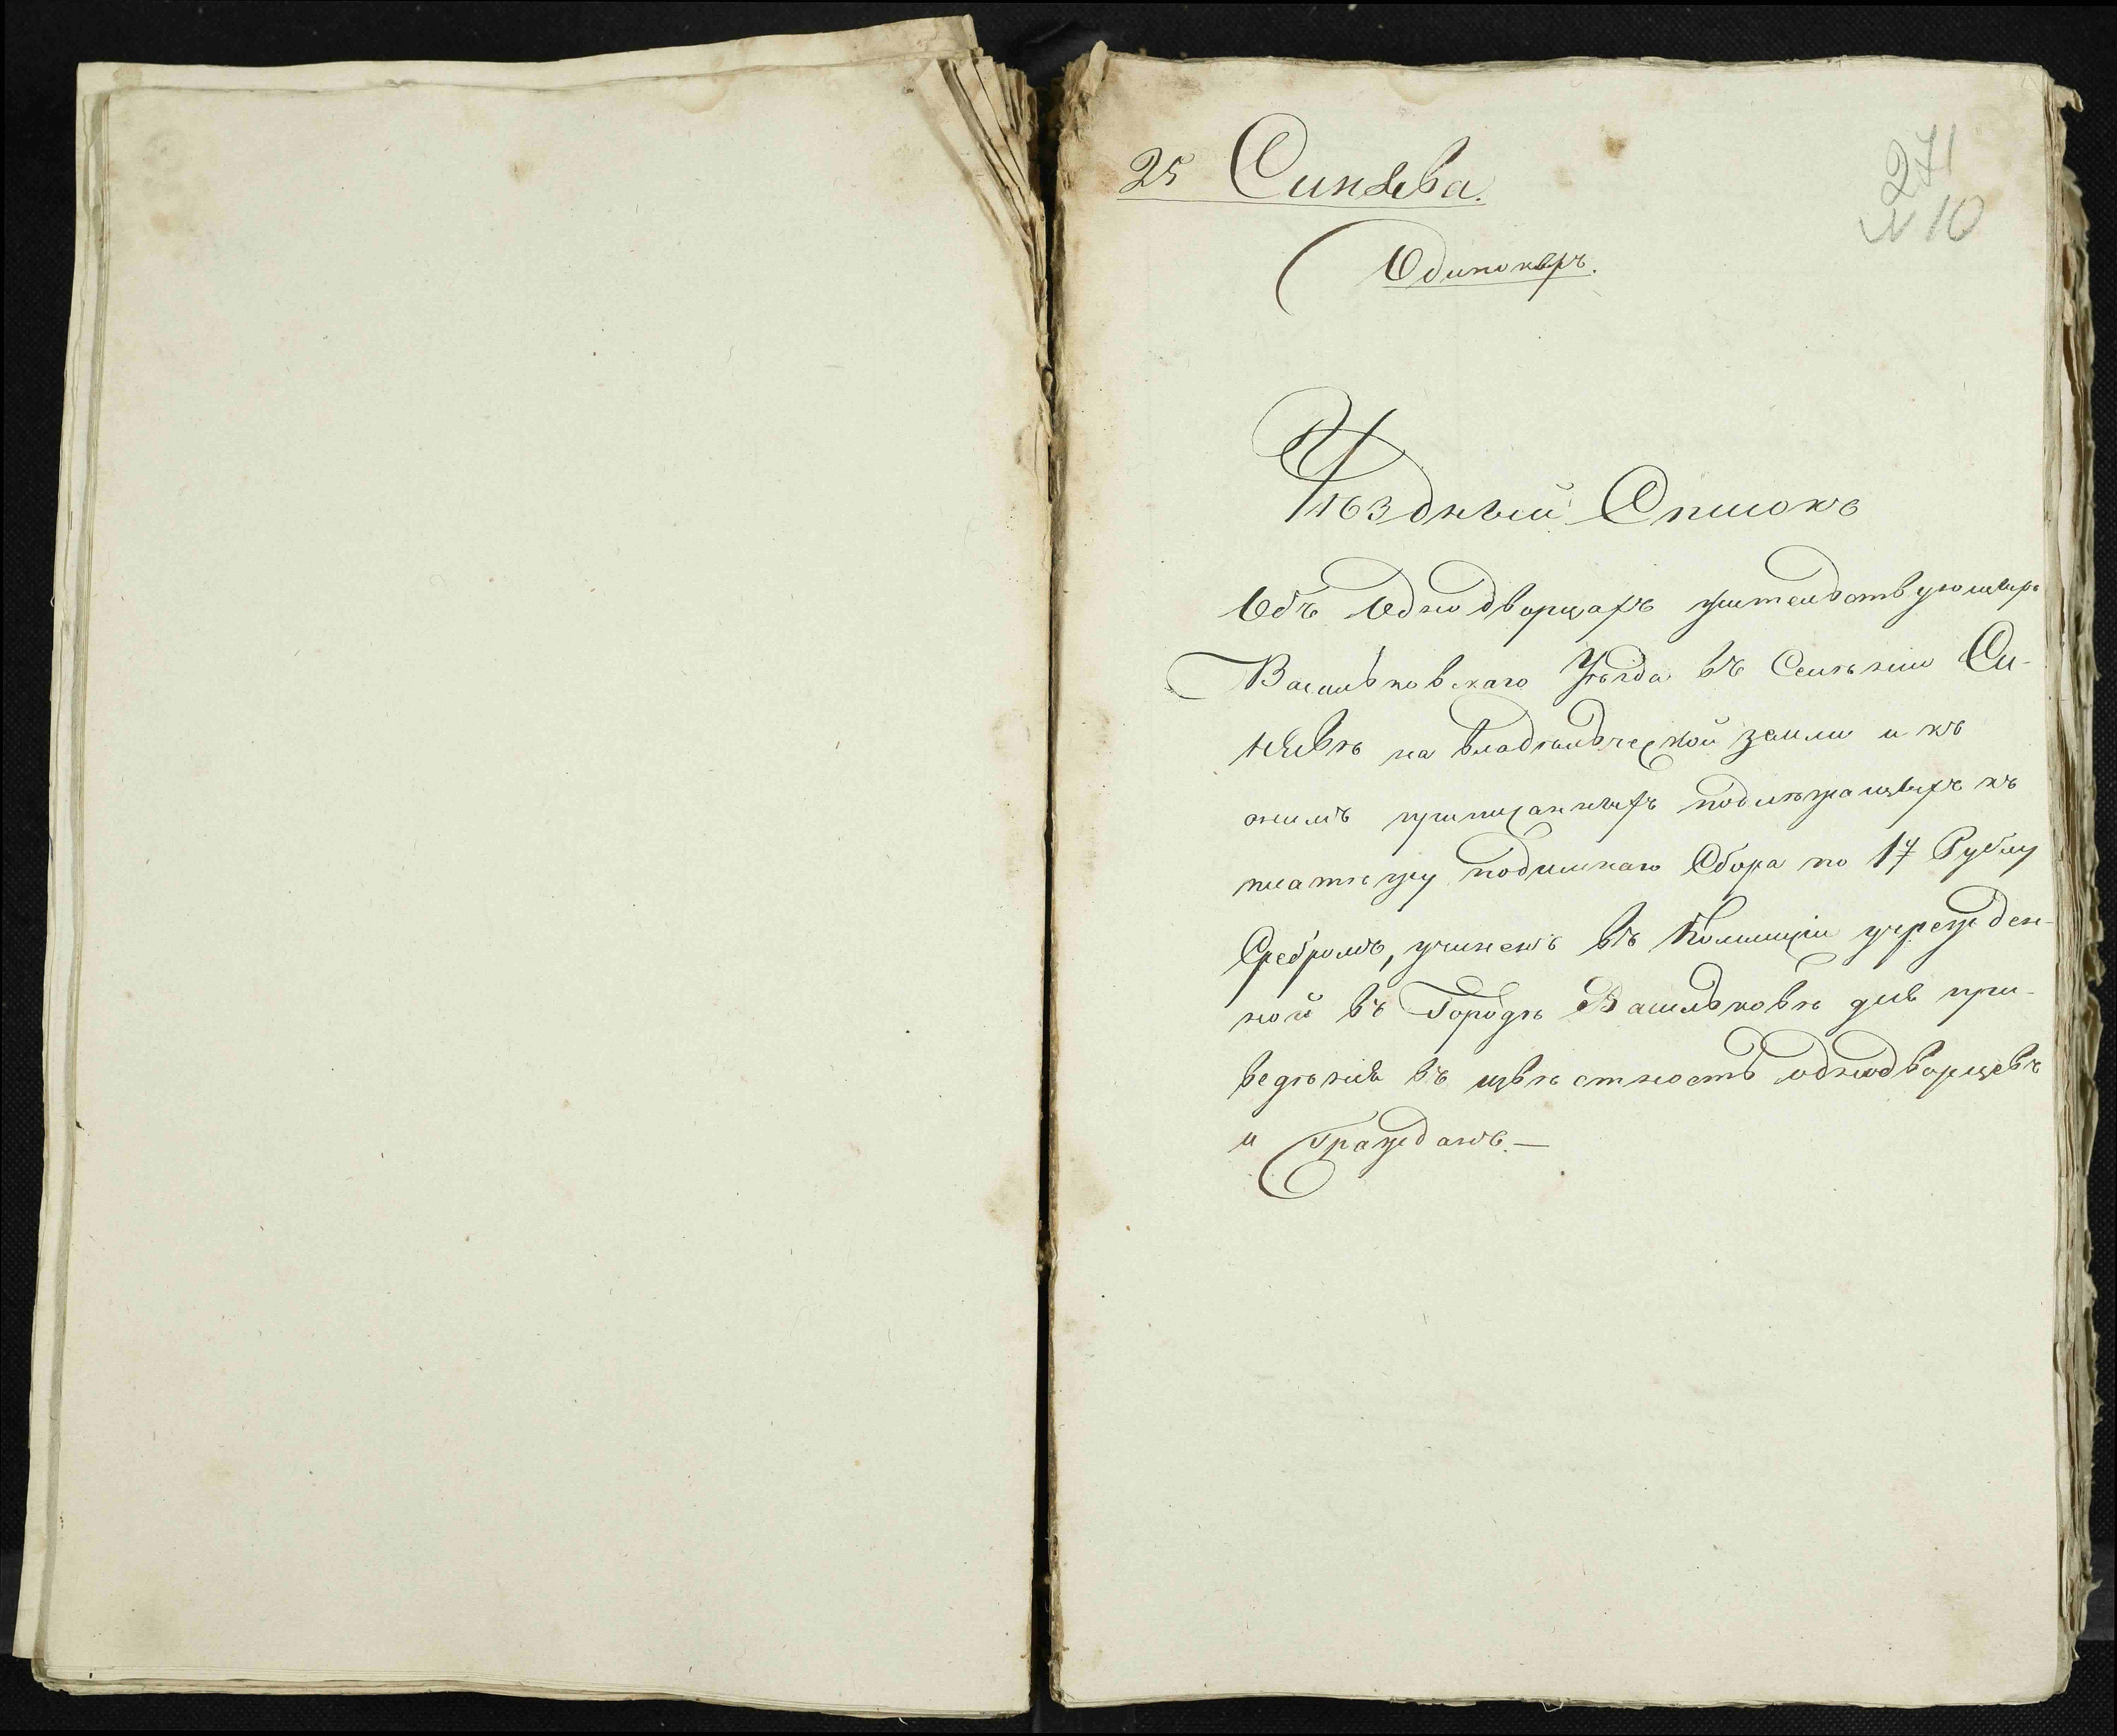 25 Синява.
271
№ 10
Одинокихъ.
Уѣздный Списокъ
Объ Однодворцахъ жительствующихъ
Васильковскаго Уѣзда въ Селѣніи Си-
нявѣ на владѣльческой земли и къ
онимъ приписанныхъ подлѣжащихъ къ
платѣжу подимнаго Сбора по 17 Рублу
Сребромъ, учиненъ въ Коммиціи учрежден-
ной въ Городѣ Васильковѣ для при-
ведѣнія въ извѣстность однодворцевъ
и Гражданъ.—